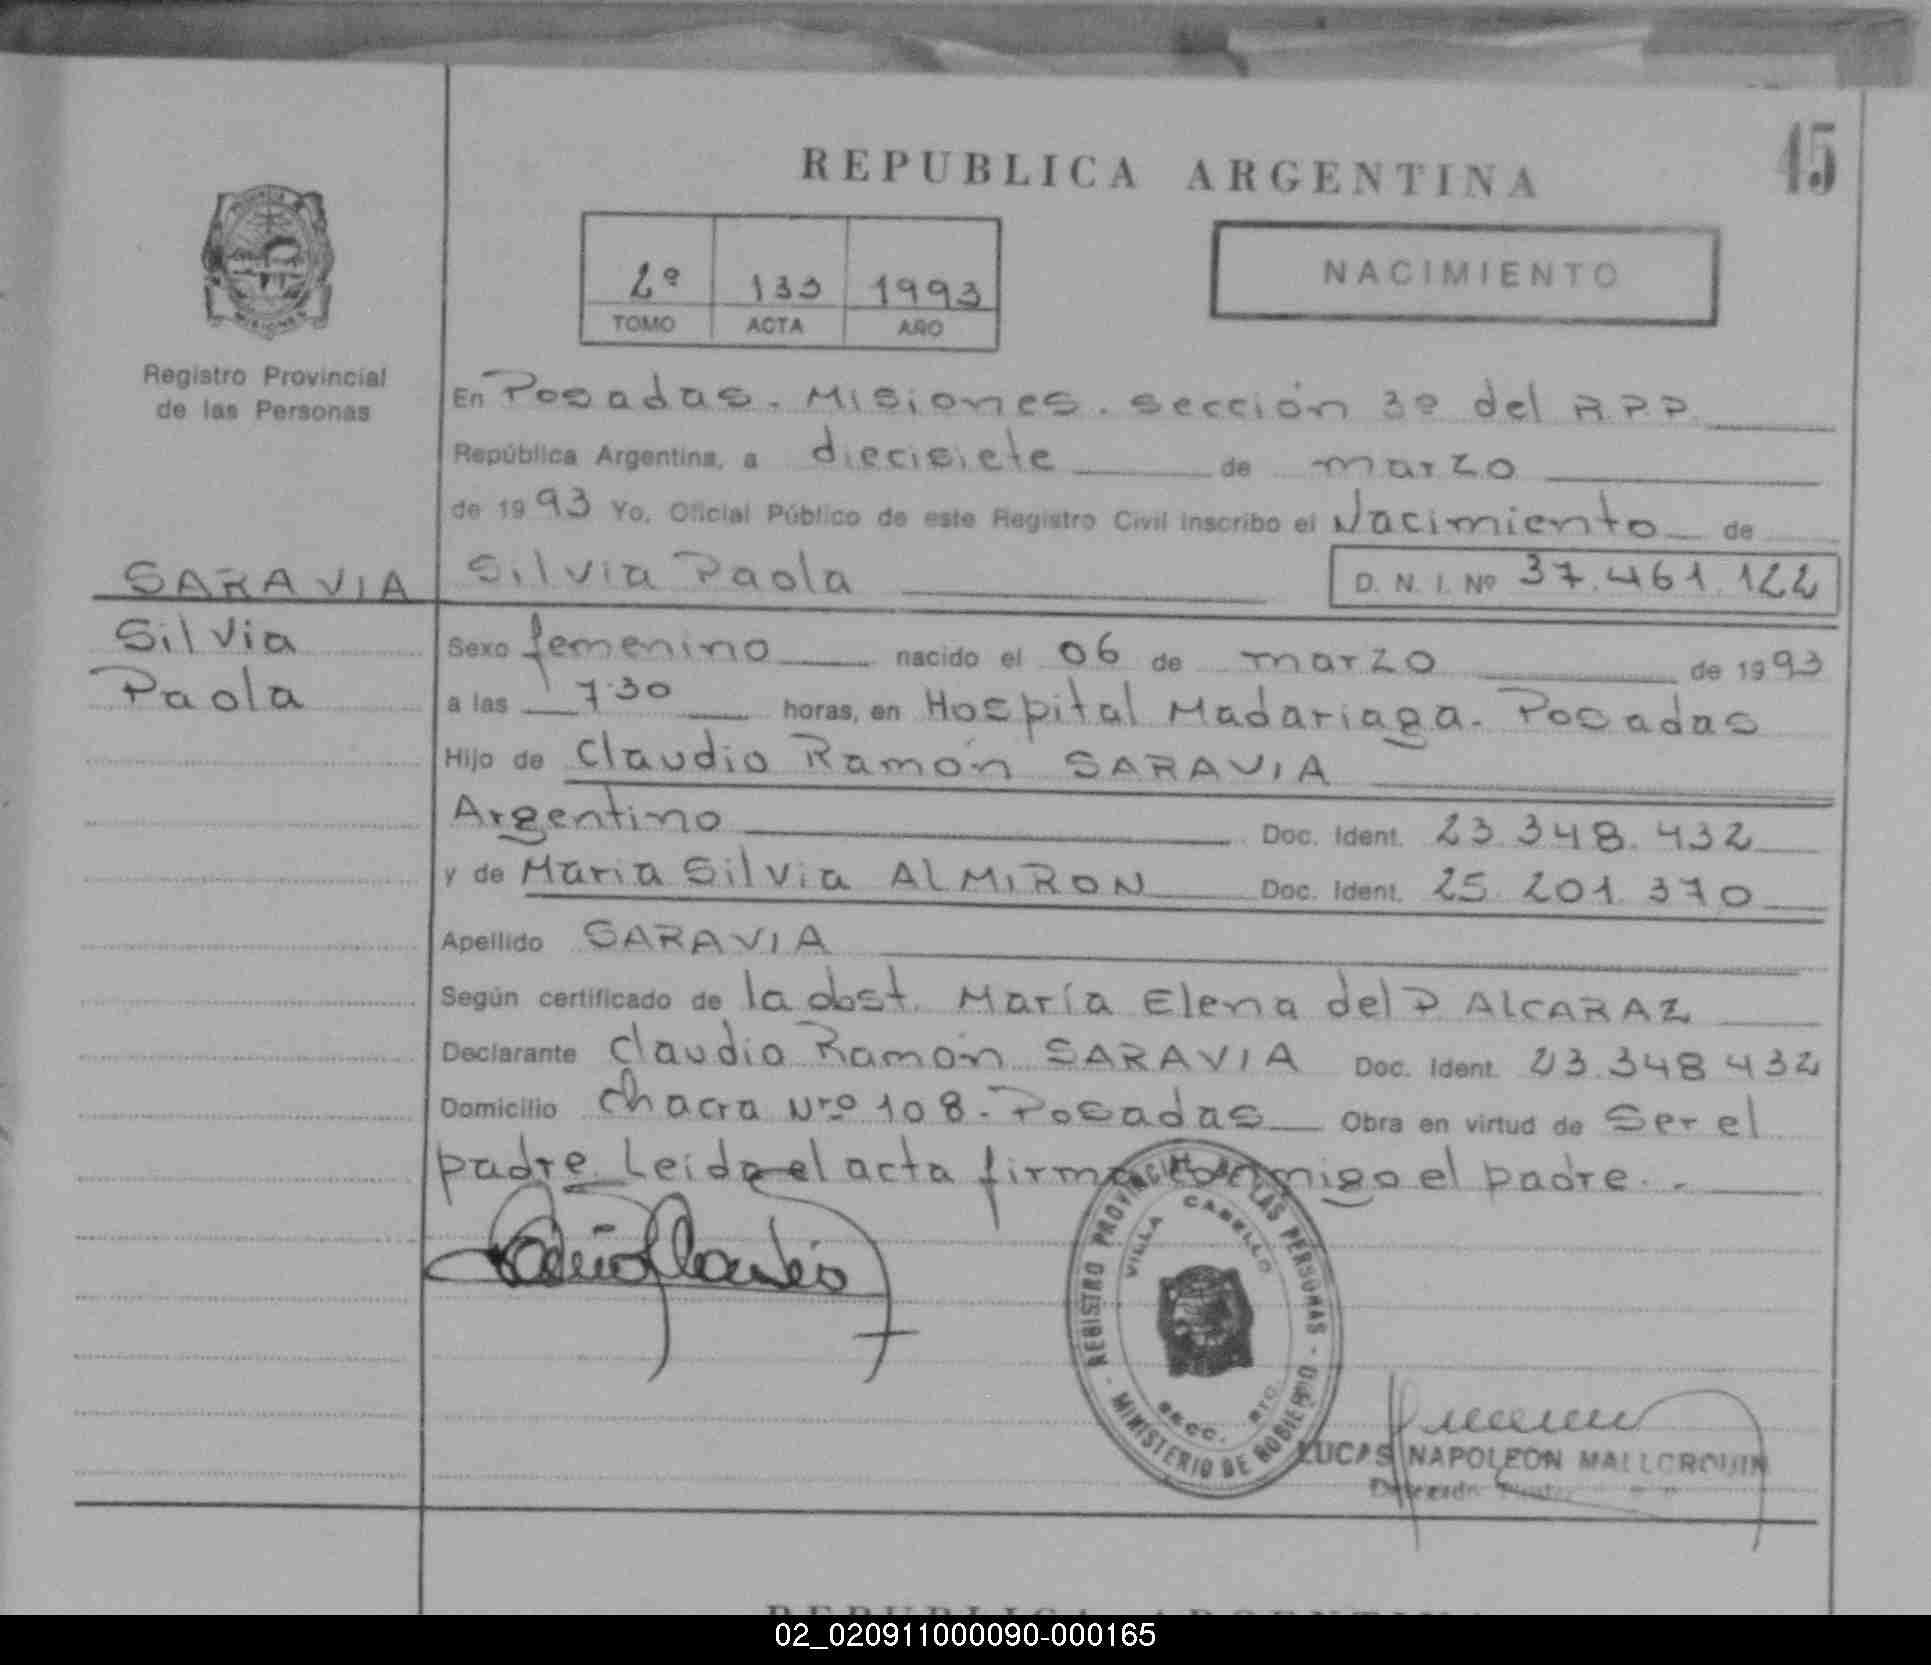 45
REPUBLICA ARGENTINA
2º 133 1993
TOMO ACTA AÑO
NACIMIENTO
MISIONES
Registro Provincial
de las Personas
En Posadas. Misiones. sección 3º del R.P.P.
República Argentina, a diecisiete de marzo
de 1993 Yo, Oficial Público de este Registro Civil inscribo el Nacimiento de
SARAVIA Silvia Paola D. N. I. Nº 37.461.122
Silvia Sexo femenino nacido el 06 de marzo de 1993
Paola a las 7.30 horas, en Hospital Madariaga. Posadas
Hijo de Claudio Ramón SARAVIA
Argentino Doc. Ident. 23.348.432
y de María Silvia ALMIRON Doc. Ident. 25.201.370
Apellido SARAVIA
Según certificado de la obst. María Elena del P. ALCARAZ
Declarante Claudio Ramón SARAVIA Doc. Ident. 23.348.432
Domicilio Chacra Nrº 108. Posadas Obra en virtud de Ser el
padre. Leida el acta firma conmigo el padre.
REGISTRO PROVINCIAL DE LAS PERSONAS - MINISTERIO DE GOBIERNO -
VILLA CABELLO
SECC.
LUCAS NAPOLEON MALLORQUIN
REPUBLICA ARGENTINA
02_020911000090-000165